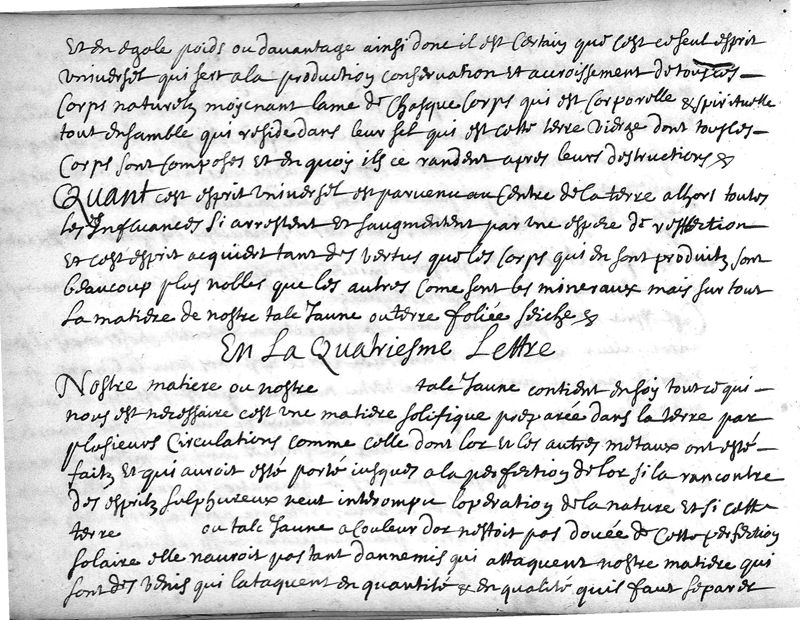 Et en egole poids ou davantage ainsi donc il est Certain que c'est ce seul esprit
Vniversel qui sert a la production conservation Et accroissement de tous ces
Corps naturelz moyenant lame de Chasque Corps qui est Corporelle & spirituelle
tout ensamble qui reside dans leur sel qui est cette terre Vierge dont tous les
Corps sont Composes Et en quoy ils ce randent apres leurs destructions &
Quant cest esprit Vniversel est parvenu au Centre de la terre alhors toutes
les Influances si arrestent Et saugmentent par vne espece de reflection
Et cest esprit acquiert tant des vertus que les Corps qui en sont produitz sont
beaucoup plus nobles que les autres Come sont les mineraux mais sur tout
La matiere de nostre talc Jaune ou terre foliée seiche &
En La Quatriesme Lettre
Nostre matiere ou nostre talc Jaune contient en soy tout ce qui
nous est necessaire cest vne matiere solifique preparée dans la terre par
plusieurs Circulations comme celle dont lor Et les autres metaux ont esté
faitz Et qui auroit esté porté iusques a la perfection de lor si la rancontre
des espritz sulphureux neut interompu loperation de la nature Et si cette
terre ou talc Jaune a couleur dor nestoit pas douée de Cette perfection
solaire elle nauroit pas tant dannemis qui attaquent nostre matiere qui
sont des venis qui lataquent en quantité & en qualité quil faut separer